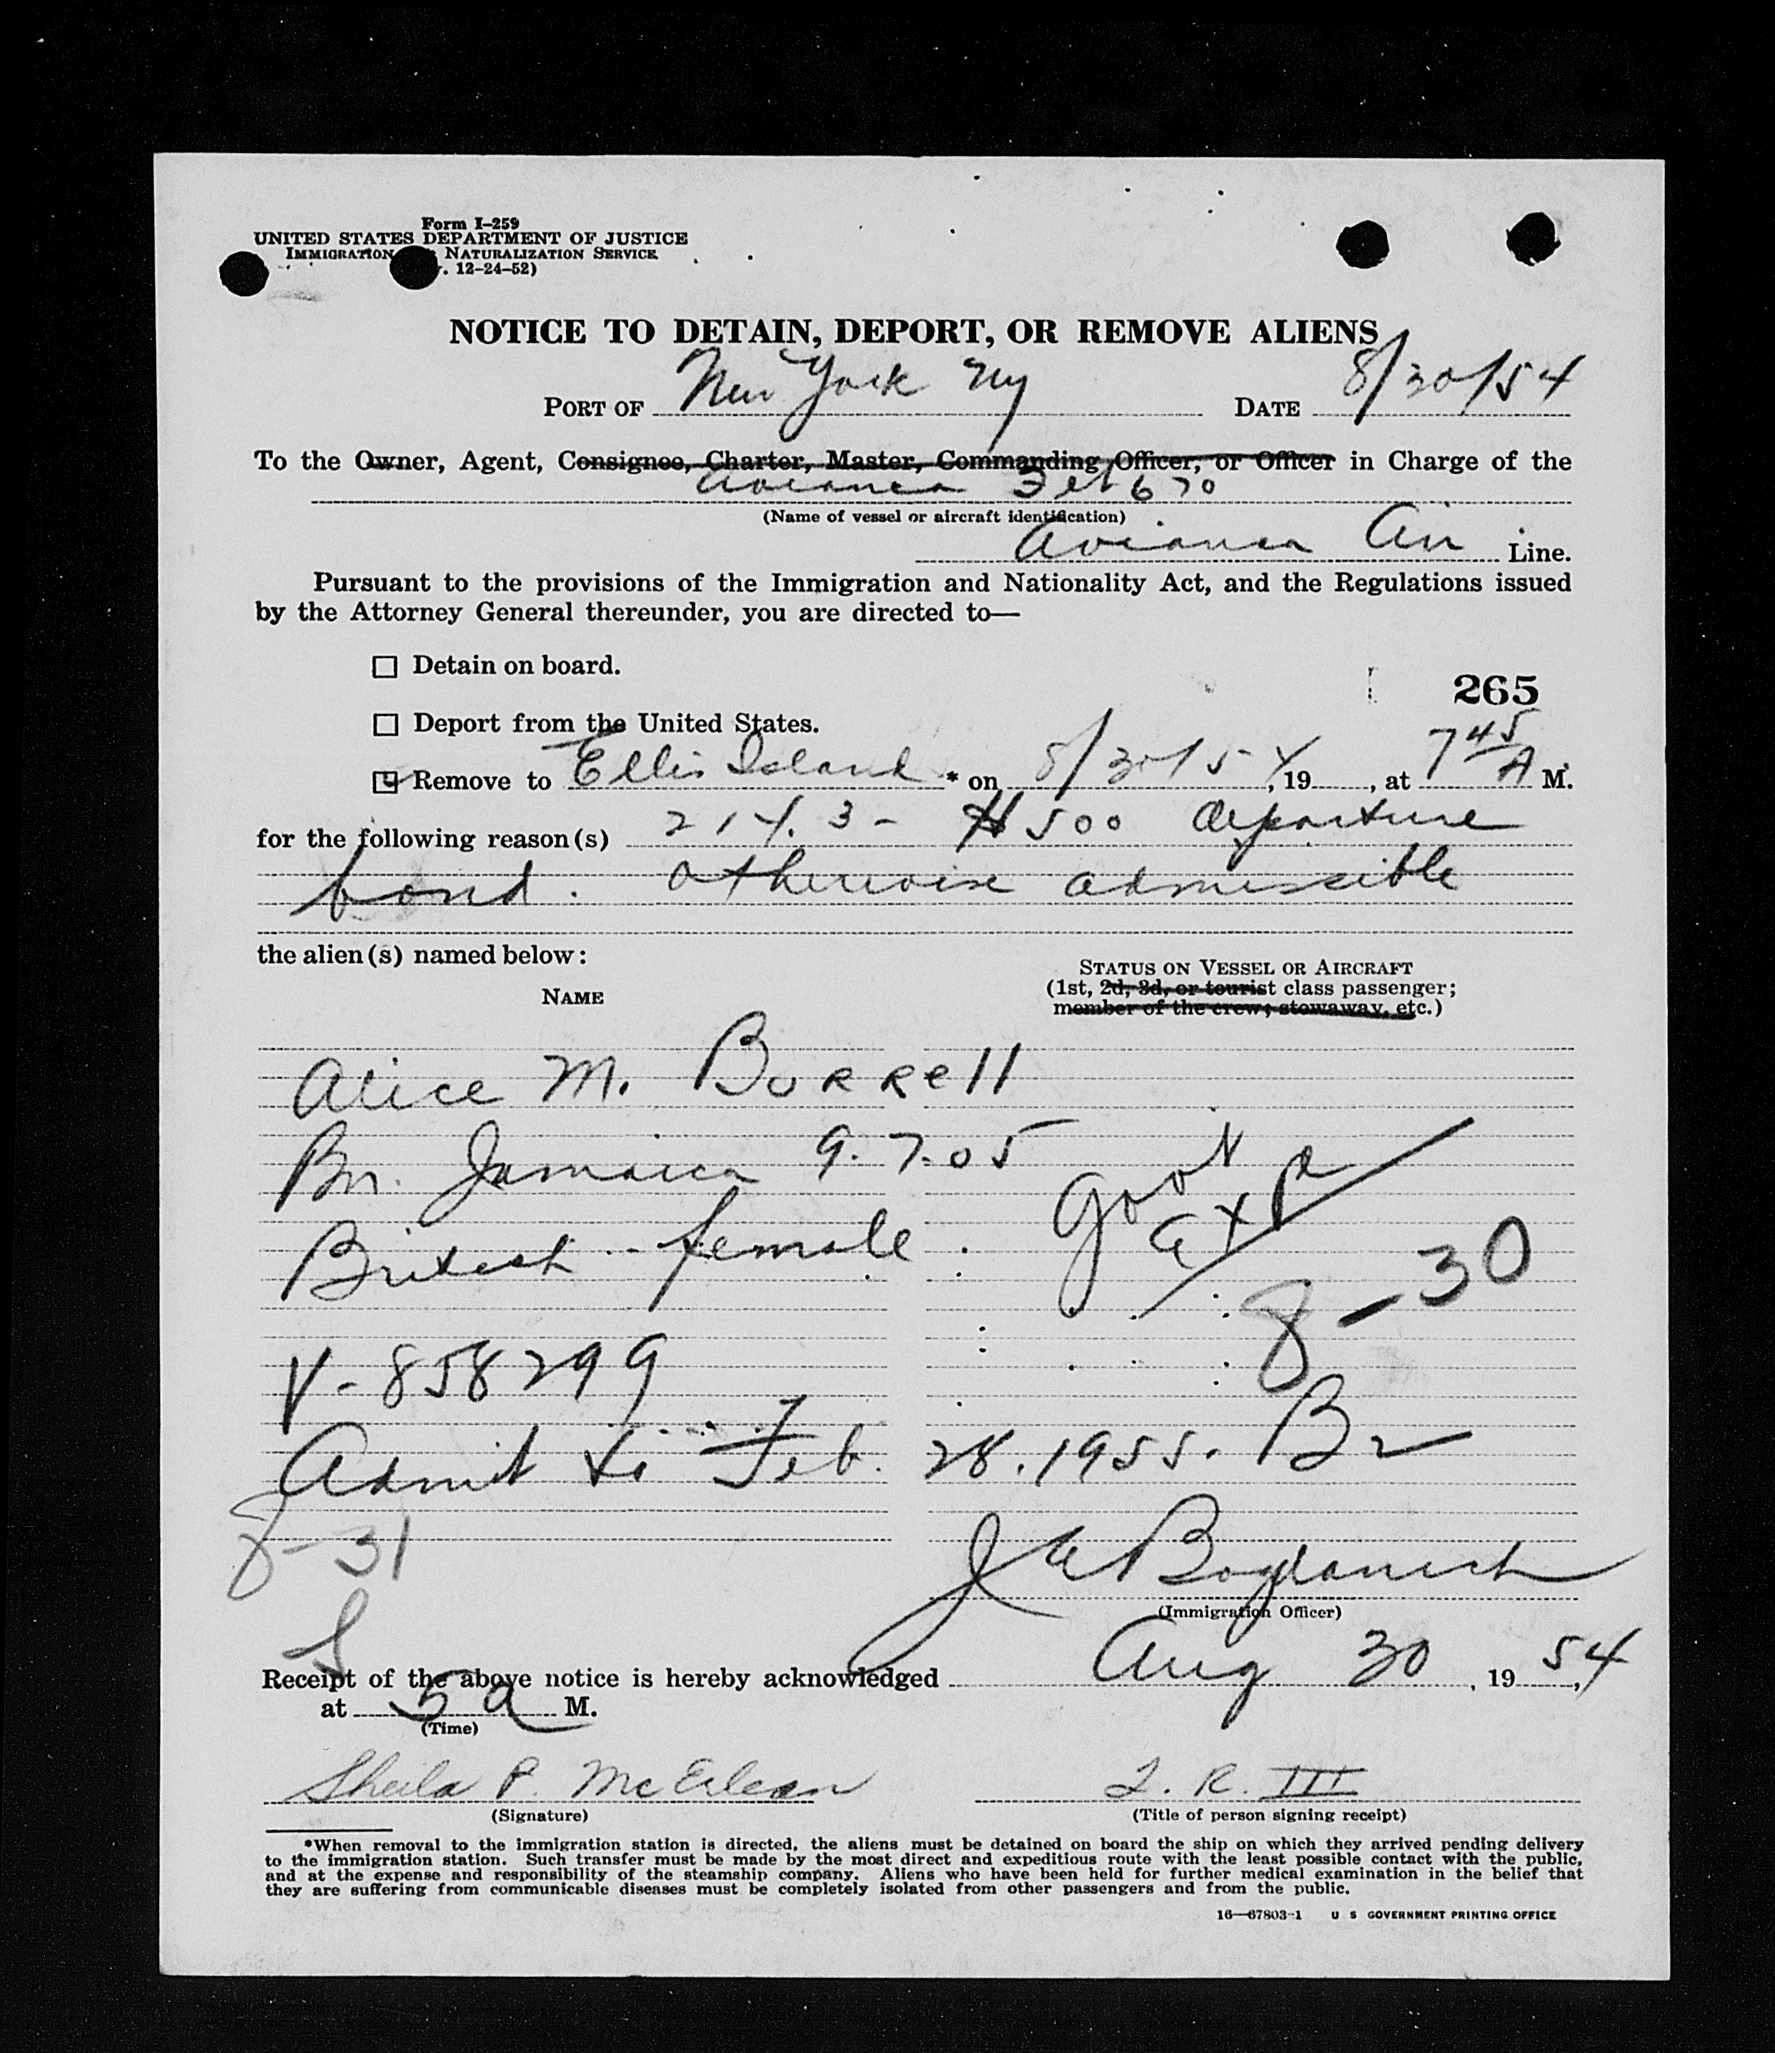 Form I-259
UNITED STATES DEPARTMENT OF JUSTICE
IMMIGRATION NATURALIZATION SERVICE
. 12-24-52)
NOTICE TO DETAIN, DEPORT, OR REMOVE ALIENS
PORT OF New York NY DATE 8/30/54
To the Owner, Agent, Consignee, Charter, Master, Commanding Officer, or Officer in Charge of the
Avianca Flt 670
(Name of vessel or aircraft identification)
Avianca Air Line.
Pursuant to the provisions of the Immigration and Nationality Act, and the Regulations issued
by the Attorney General thereunder, you are directed to—
Detain on board.
265
Deport from the United States.
Remove to Ellis Island * on 8/30/54, 19 , at 7 45 A M.
for the following reason(s) 214.3 - $500 departure
bond. otherwise admissible
the alien(s) named below:
STATUS ON VESSEL OR AIRCRAFT
NAME
(1st, 2d, 3d, or tourist class passenger;
member of the crew; stowaway, etc.)
Alice M. Burrell
Bn. Jamaica 9.7.05
British - female
Govt
exp
8-30
V-858299
Admit to Feb. 28. 1955.
8-31
J Bogdanich
(Immigration Officer)
Receipt of the above notice is hereby acknowledged Aug 30, 19 54,
at 5 a M.
(Time)
Sheila P. McErlean
(Signature)
R. III
(Title of person signing receipt)
*When removal to the immigration station is directed, the aliens must be detained on board the ship on which they arrived pending delivery
to the immigration station. Such transfer must be made by the most direct and expeditious route with the least possible contact with the public,
and at the expense and responsibility of the steamship company. Aliens who have been held for further medical examination in the belief that
they are suffering from communicable diseases must be completely isolated from other passengers and from the public.
16—67803-1 U S GOVERNMENT PRINTING OFFICE